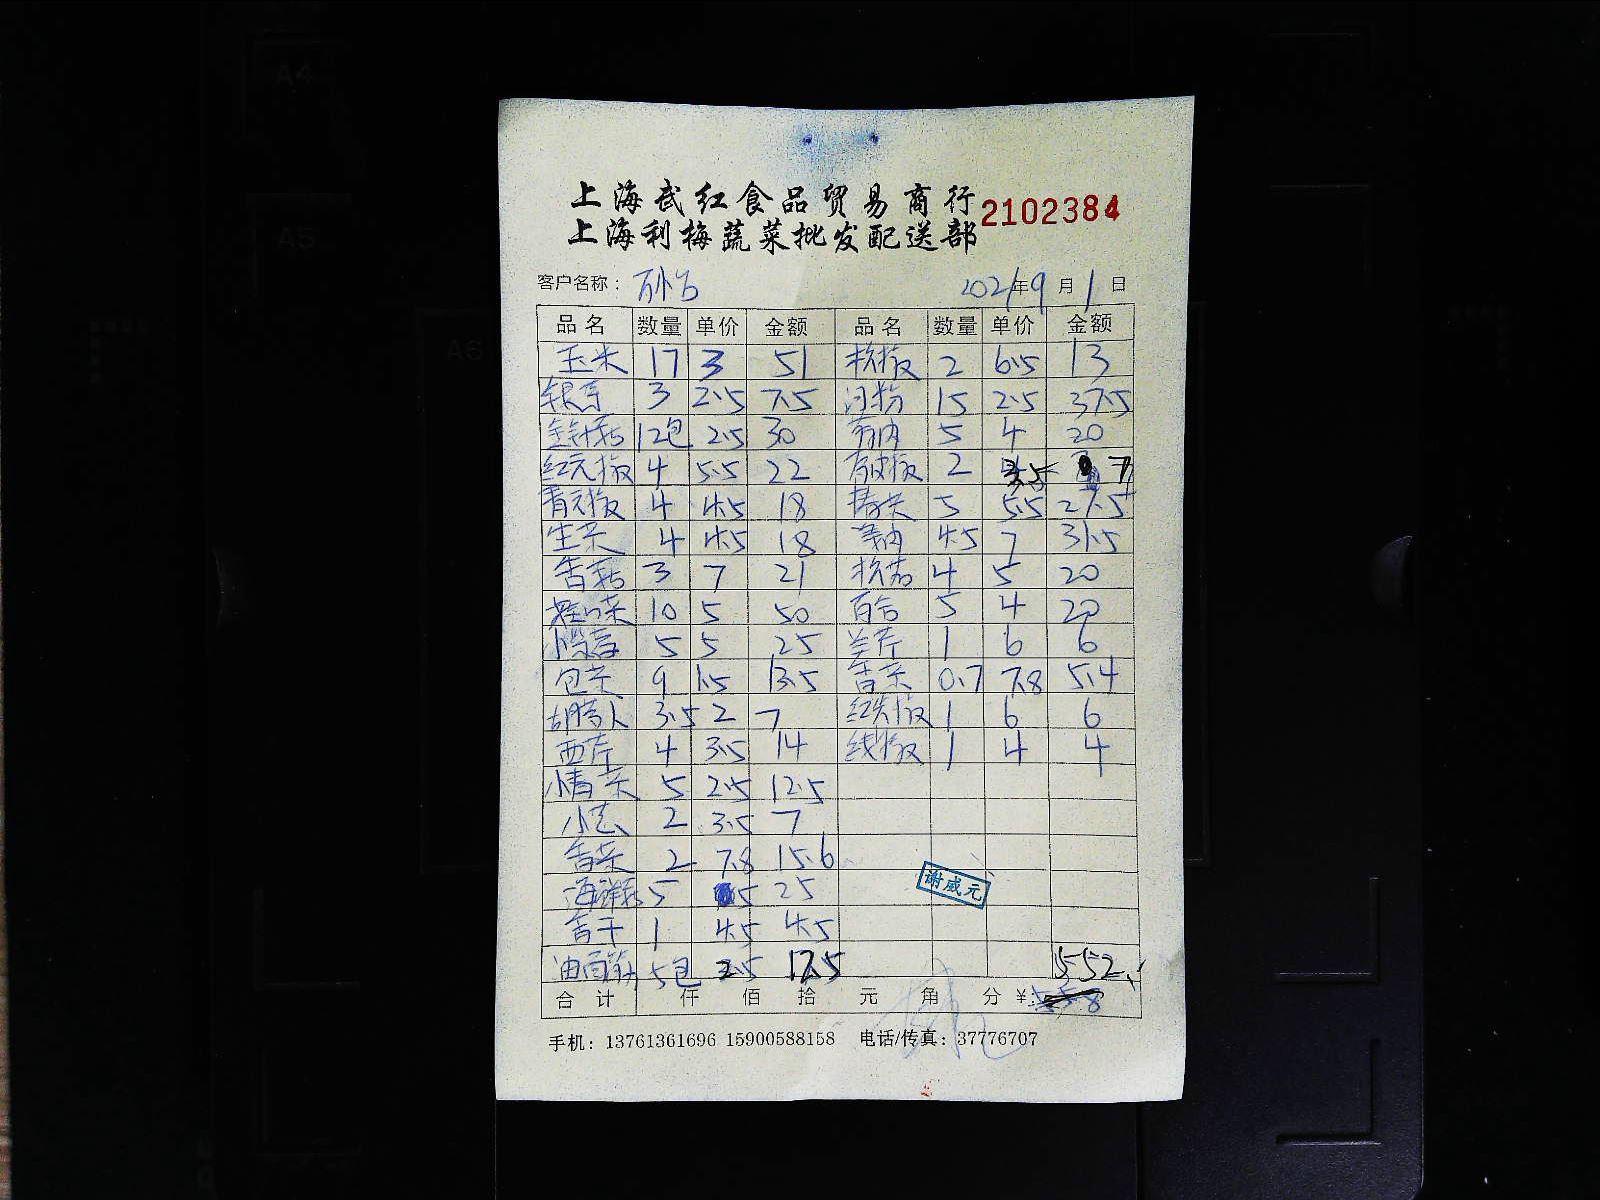 上海武红食品贸易商行
2102384
上海利梅蔬菜批发配送部
客户名称： 2021年9月1日
品名 数量 单价 金额 品名 数量 单价 金额
玉米 17 3 51 2 6.5 13
银芽 3 2.5 7.5 河粉 15 2.5 37.5
金针菇 12包 2.5 30 5 4 20
红元椒 4 5.5 22 2 3.5 7
青元椒 4 4.5 18 5 5.5 27.5
生菜 4 4.5 18 4.5 7 31.5
香菇 3 7 21 4 5 20
10 5 50 百合 5 4 20
5 5 25 兰芹 1 6 6
包菜 9 1.5 13.5 香菜 0.7 7.8 5.4
胡萝卜 3.5 2 7 红尖椒 1 6 6
西芹 4 3.5 14 线椒 1 4 4
小青菜 5 2.5 12.5
小葱 2 3.5 7
香菜 2 7.8 15.6
海鲜菇 5 5 25
香干 1 4.5 4.5
谢威元
油面筋 5包 3.5 17.5 552.
合计 仟 佰 拾 元 角 分 ¥:
手机：13761361696 15900588158 电话/传真：37776707